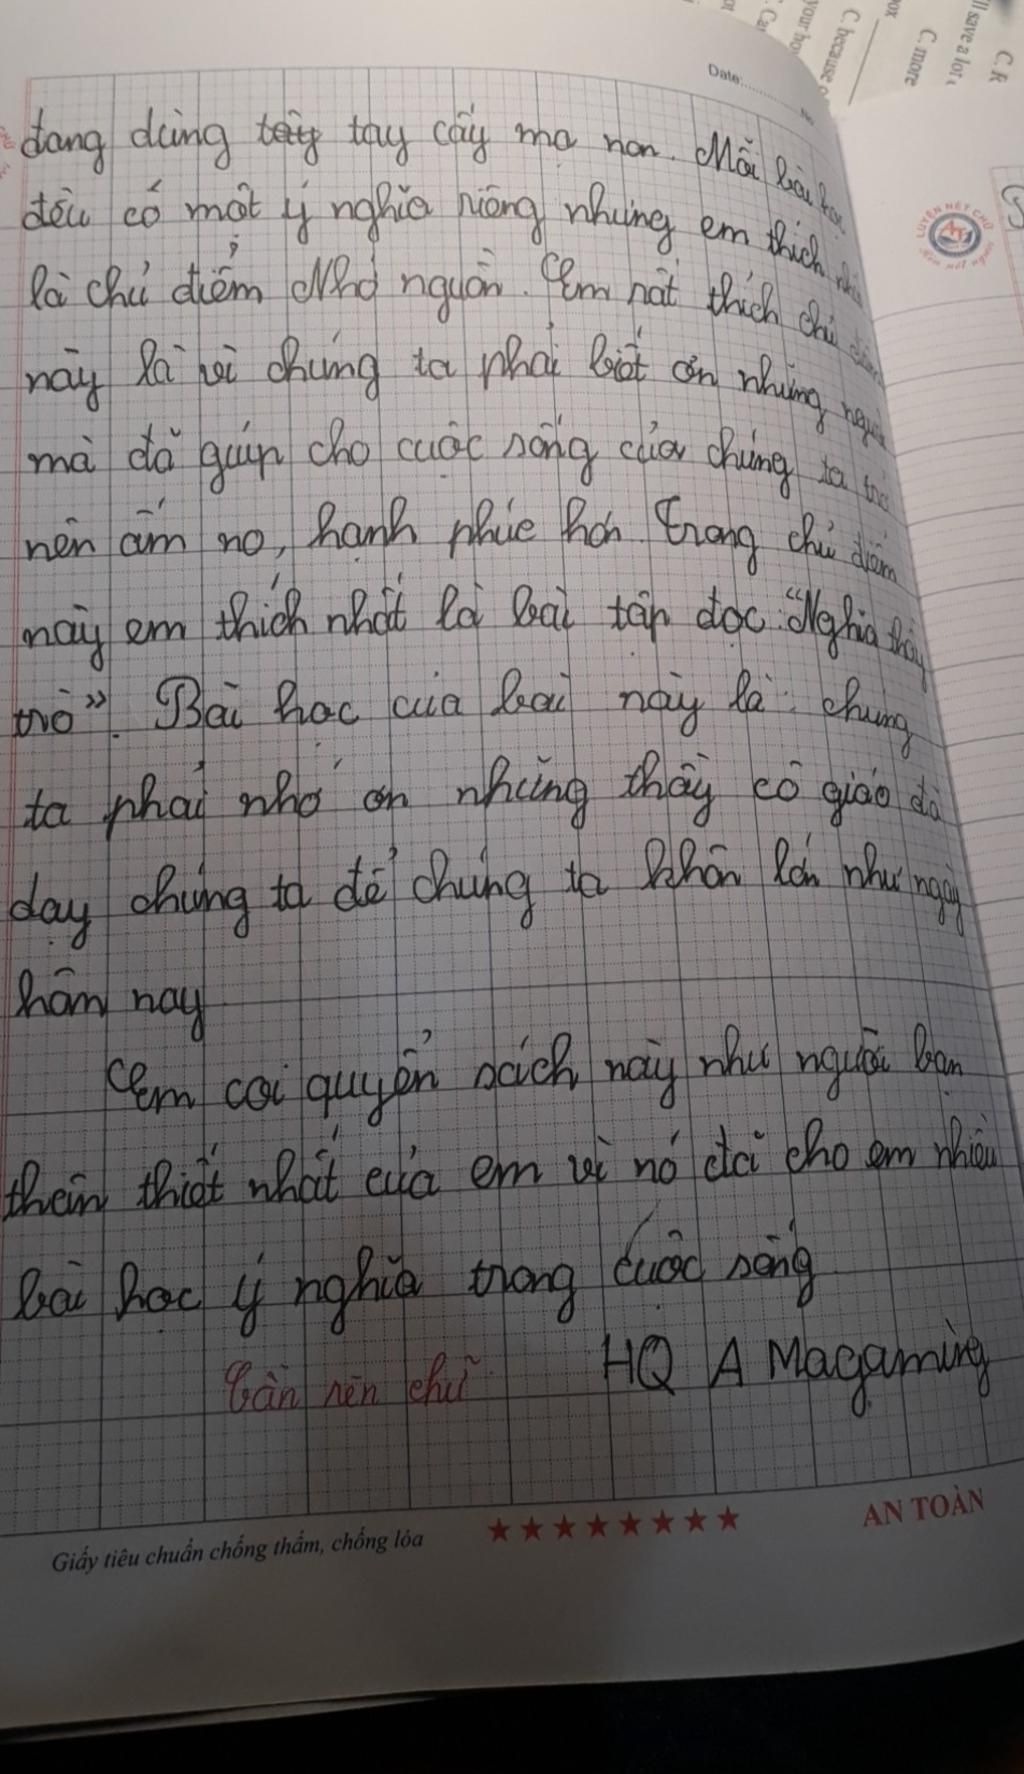 C. R
'll save a lot
C. more
box
C. because
your ho
C. Ca
Date:
No
đang dùng tay cấy mạ non. Mỗi bài học
đều có một ý nghĩa riêng nhưng em thích nhất
là chủ điểm Nhớ nguồn. Em rất thích chủ điểm
này là vì chúng ta phải biết ơn những người
mà đã giúp cho cuộc sống của chúng ta trở
nên ấm no, hạnh phúc hơn. Trong chủ điểm
này em thích nhất là bài tập đọc: "Nghĩa thầy
trò". Bài học của bài này là: chúng
ta phải nhớ ơn những thầy cô giáo đã
dạy chúng ta để chúng ta khôn lớn như ngày
hôm nay
Em coi quyển sách này như người bạn
thân thiết nhất của em vì nó đã cho em nhiều
bài học ý nghĩa trong cuộc sống
Cần rèn chữ HQ A Magaming
LUYỆN NÉT CHỮ
Rèn nết người
Giấy tiêu chuẩn chống thấm, chống lóa ★★★★★★★★ AN TOÀN